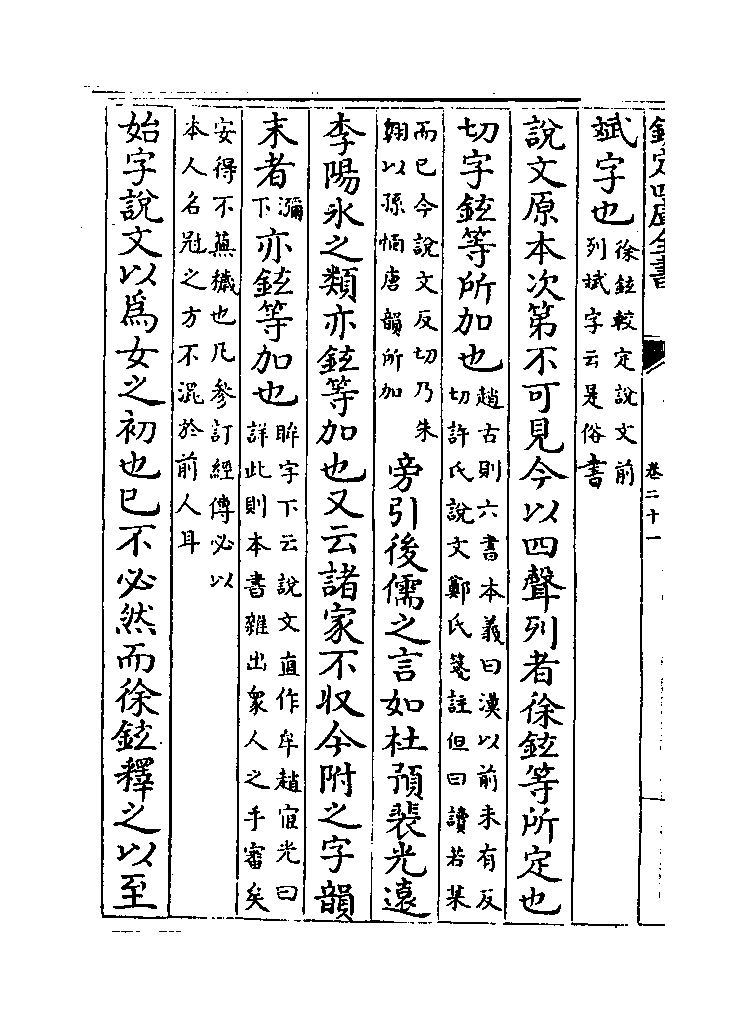 欽定四庫全書
卷二十一
斌字也徐鉉較定說文前
列斌字云是俗書
說文原本次第不可見今以四聲列者徐鉉等所定也
切字鉉等所加也趙古則六書本義曰漢以前未有反
切許氏說文鄭氏箋註但曰讀若某
而已今說文反切乃朱
翱以孫愐唐韻所加
旁引後儒之言如杜預裴光遠
李陽氷之類亦鉉等加也又云諸家不収今附之字韻
末者瀰
下亦鉉等加也眸字下云說文直作牟趙宧光曰
詳此則本書雜出衆人之手審矣
安得不蕪穢也凡參訂經傳必以
本人名冠之方不混於前人耳
始字說文以爲女之初也已不必然而徐鉉釋之以至